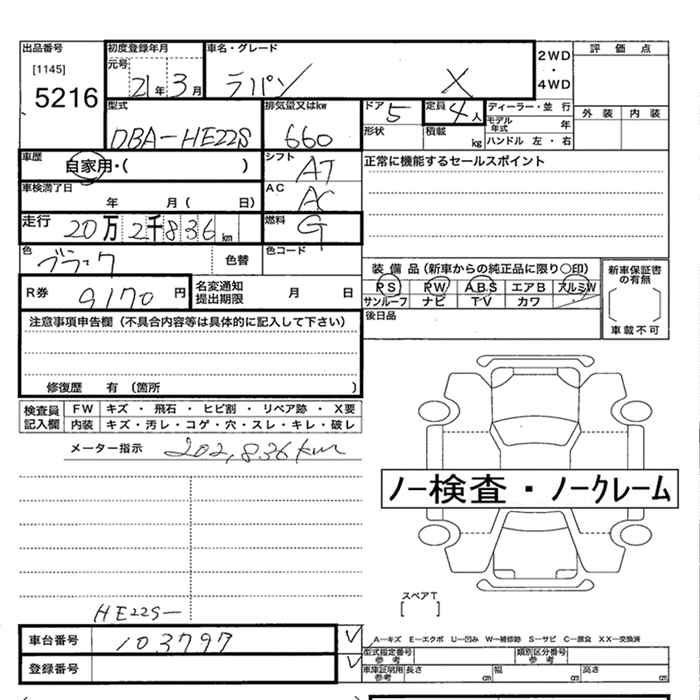 出品番号
[1145]
5216
初度登録年月
元号 21 年 3 月
車名・グレード
ラパン X
2WD
・
4WD
評価点
外装 内装
型式
DBA-HE22S
排気量又はkw
660
ドア 5
定員 4 人
形状
積載 kg
ディーラー・並行
モデル年式 年
ハンドル 左・右
車歴
自家用・( )
シフト
AT
正常に機能するセールスポイント
車検満了日
年 月 ( 日)
AC
AC
走行 20万2千836 km
燃料
G
色
ブラック
色替
色コード
装備品 (新車からの純正品に限り○印)
PS PW ABS エアB アルミW
サンルーフ ナビ TV カワ ・
新車保証書の有無
車載不可
R券 9170 円
名変通知
提出期限
月 日
後日品
注意事項申告欄 (不具合内容等は具体的に記入して下さい)
修復歴 有 (箇所 )
検査員
記入欄
FW キズ・飛石・ヒビ割・リペア跡・X要
内装 キズ・汚レ・コゲ・穴・スレ・キレ・破レ
メーター指示 202,836km
ノー検査・ノークレーム
スペアT
[ ]
HE22S-
車台番号 103797
登録番号
A─キズ E─エクボ U─凹み W─補修跡 S─サビ C─腐食 XX─交換済
型式指定番号
参考
類別区分番号
参考
車庫証明用
参考
長さ cm 幅 cm 高さ cm